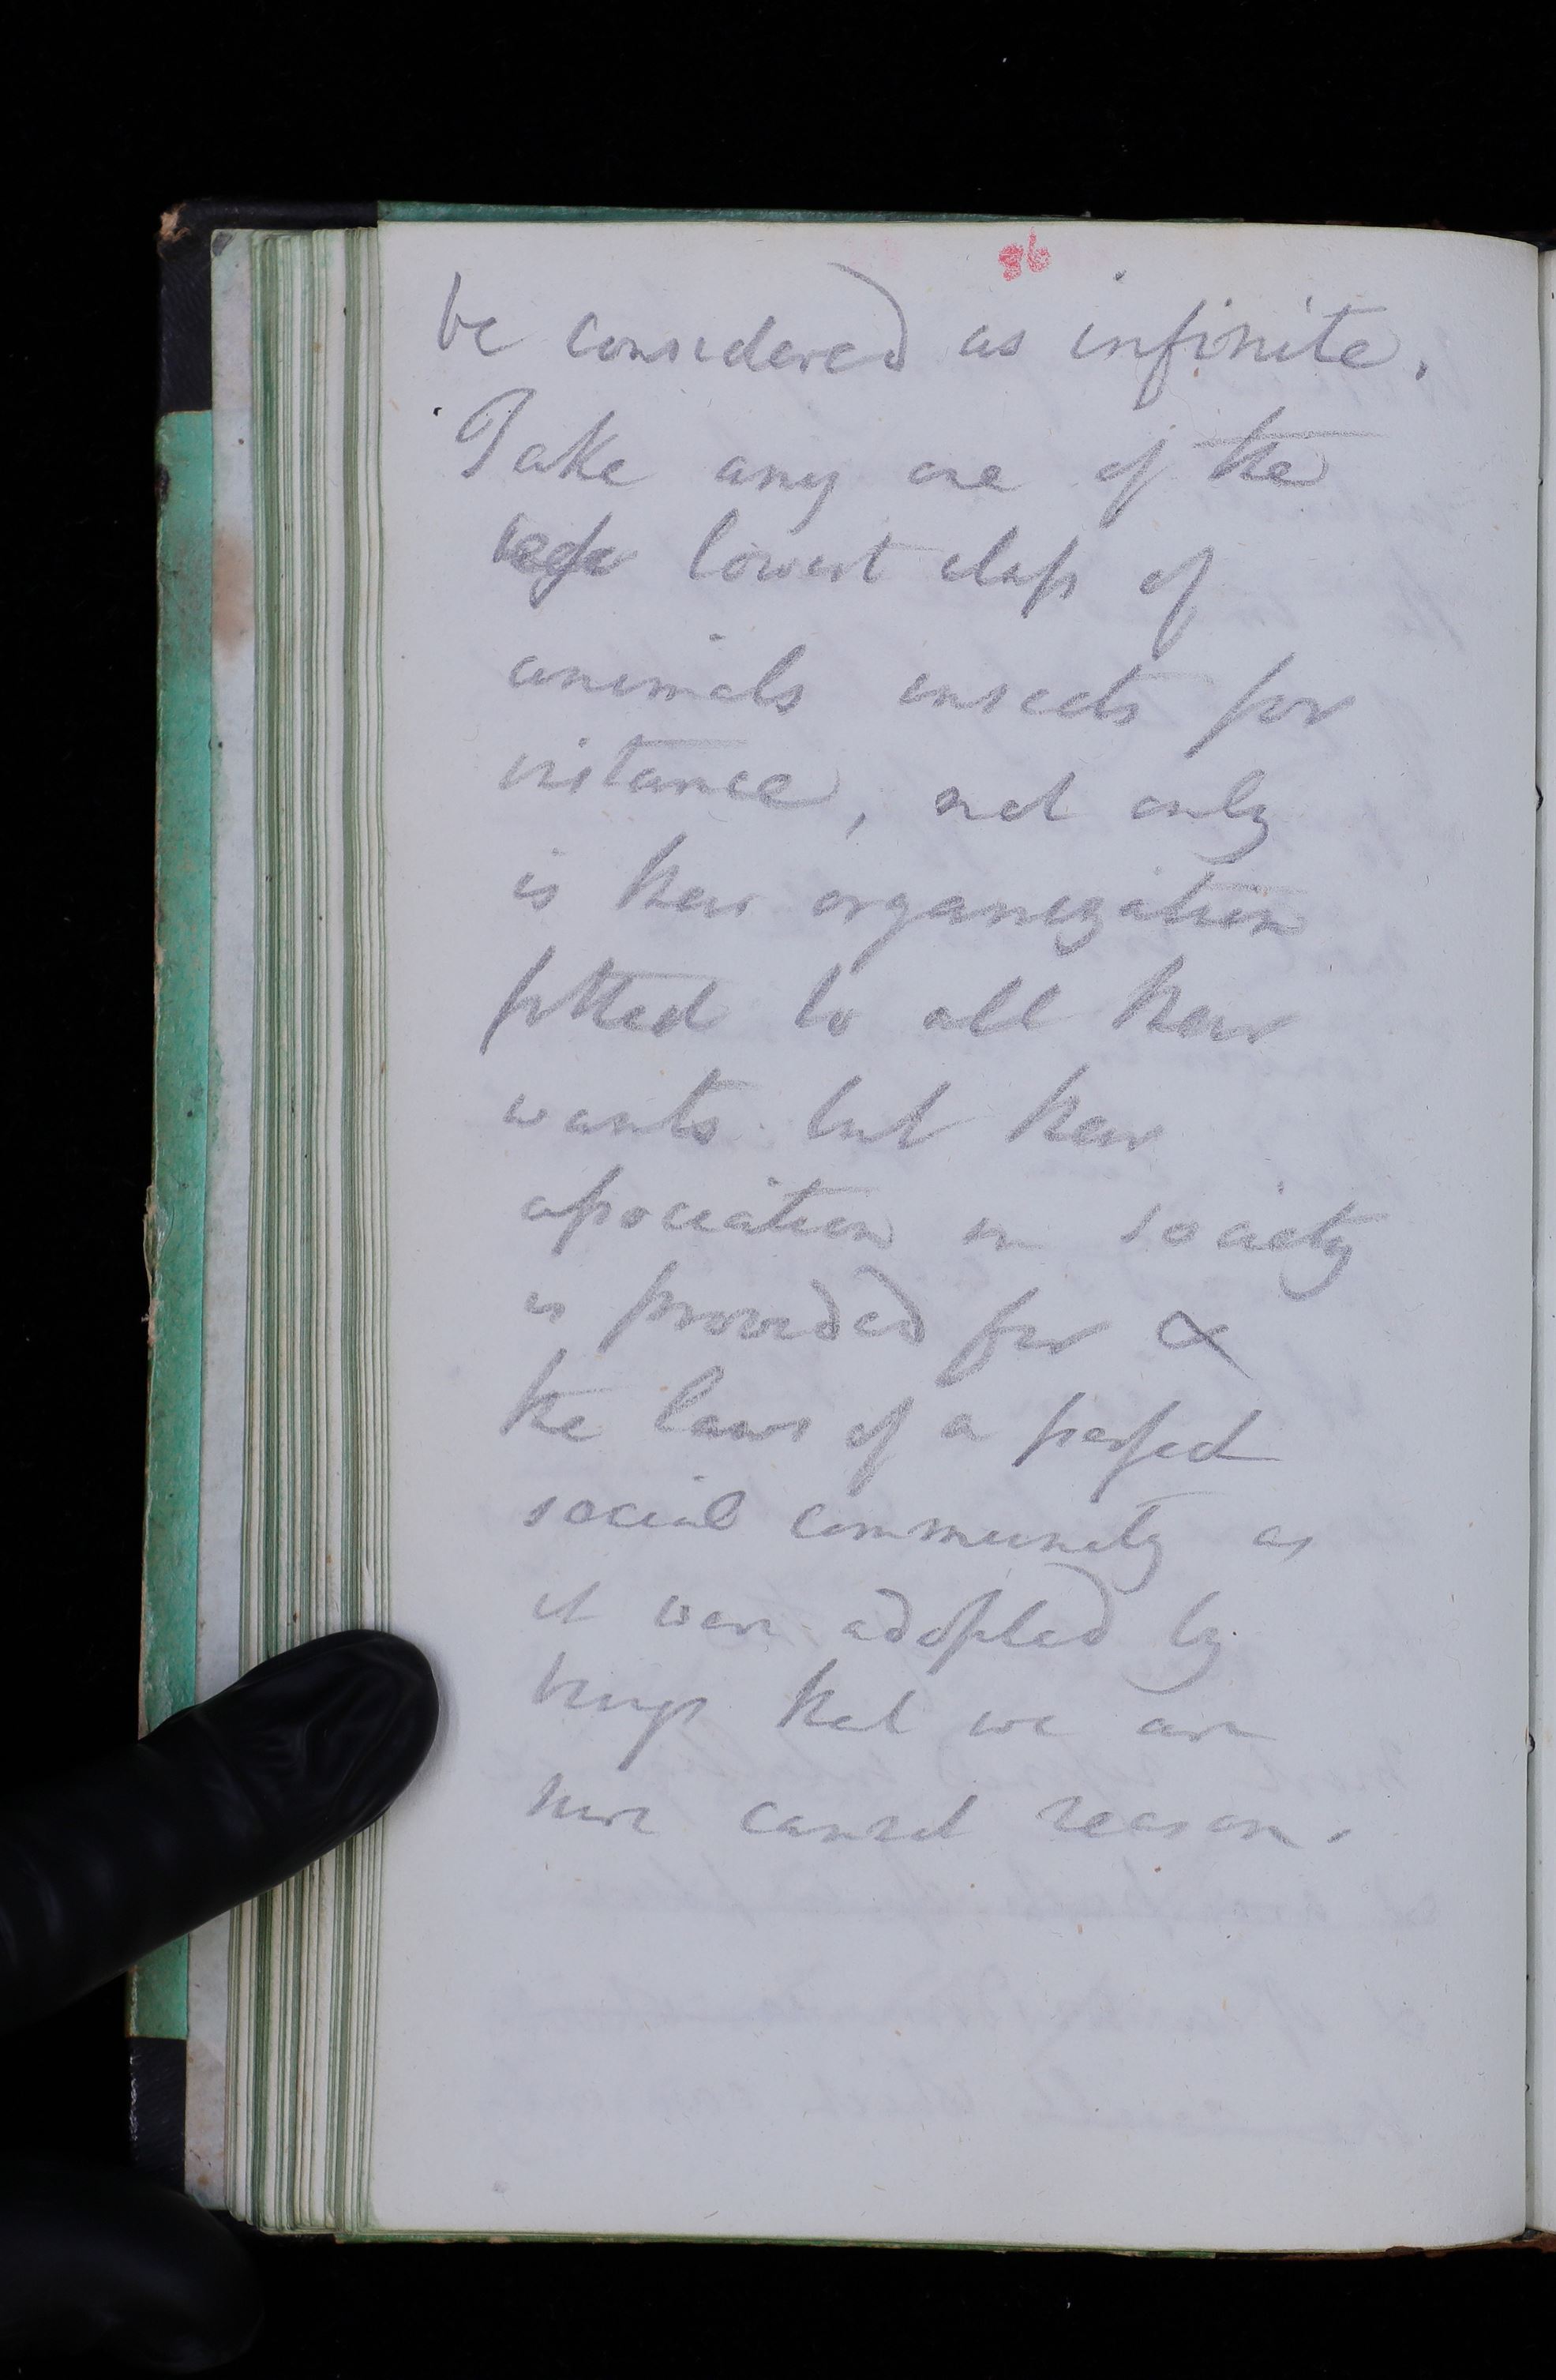 36
be considered as infinite.
Take any one of the
lowest class of
animals insects for
instance, not only
is their organization
fitted to all their
wants but their
association in society
is provided for &
the laws of a perfect
social community as
it were adopted by
beings that we are
sure cannot reason.